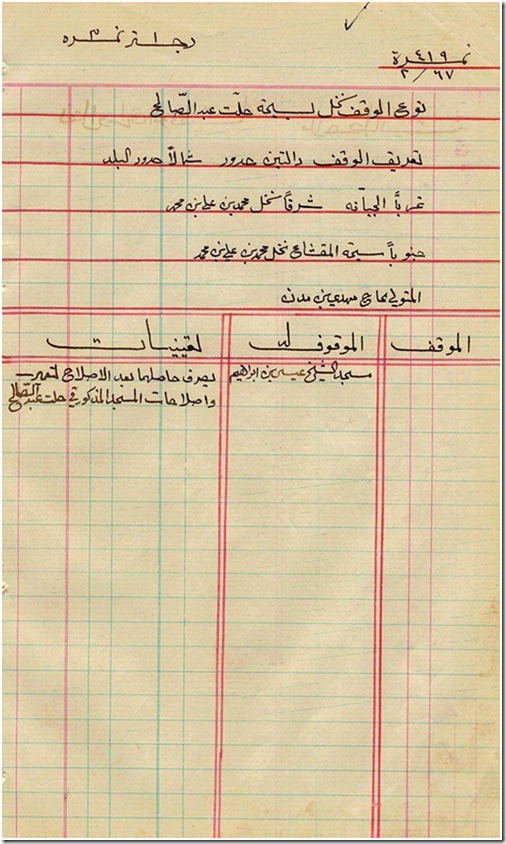 نمـ٤١٩ـرة
٢/٦٧
رجـاسـتر نمـ٣ـره
نوع الوقف نخل لسيحة حلّت عبد الصّالح
تعريف الوقف والتين حدور شمالاً حدور البلد
غرباً الجبّانه شرقاً نخل محمد بن علي بن محمد
جنوباً سيحة المقشاع نخل محمد بن علي بن محمد
المتولي حاج مهدي بن مدن
الموقف الموقوف له تعيينات
مسجد الشيخ عيسى بن ابراهيم
يصرف حاصلهما بعد الاصلاح لتعمير
واصلاحات المسجد المذكور في حلت عبد الصّالح